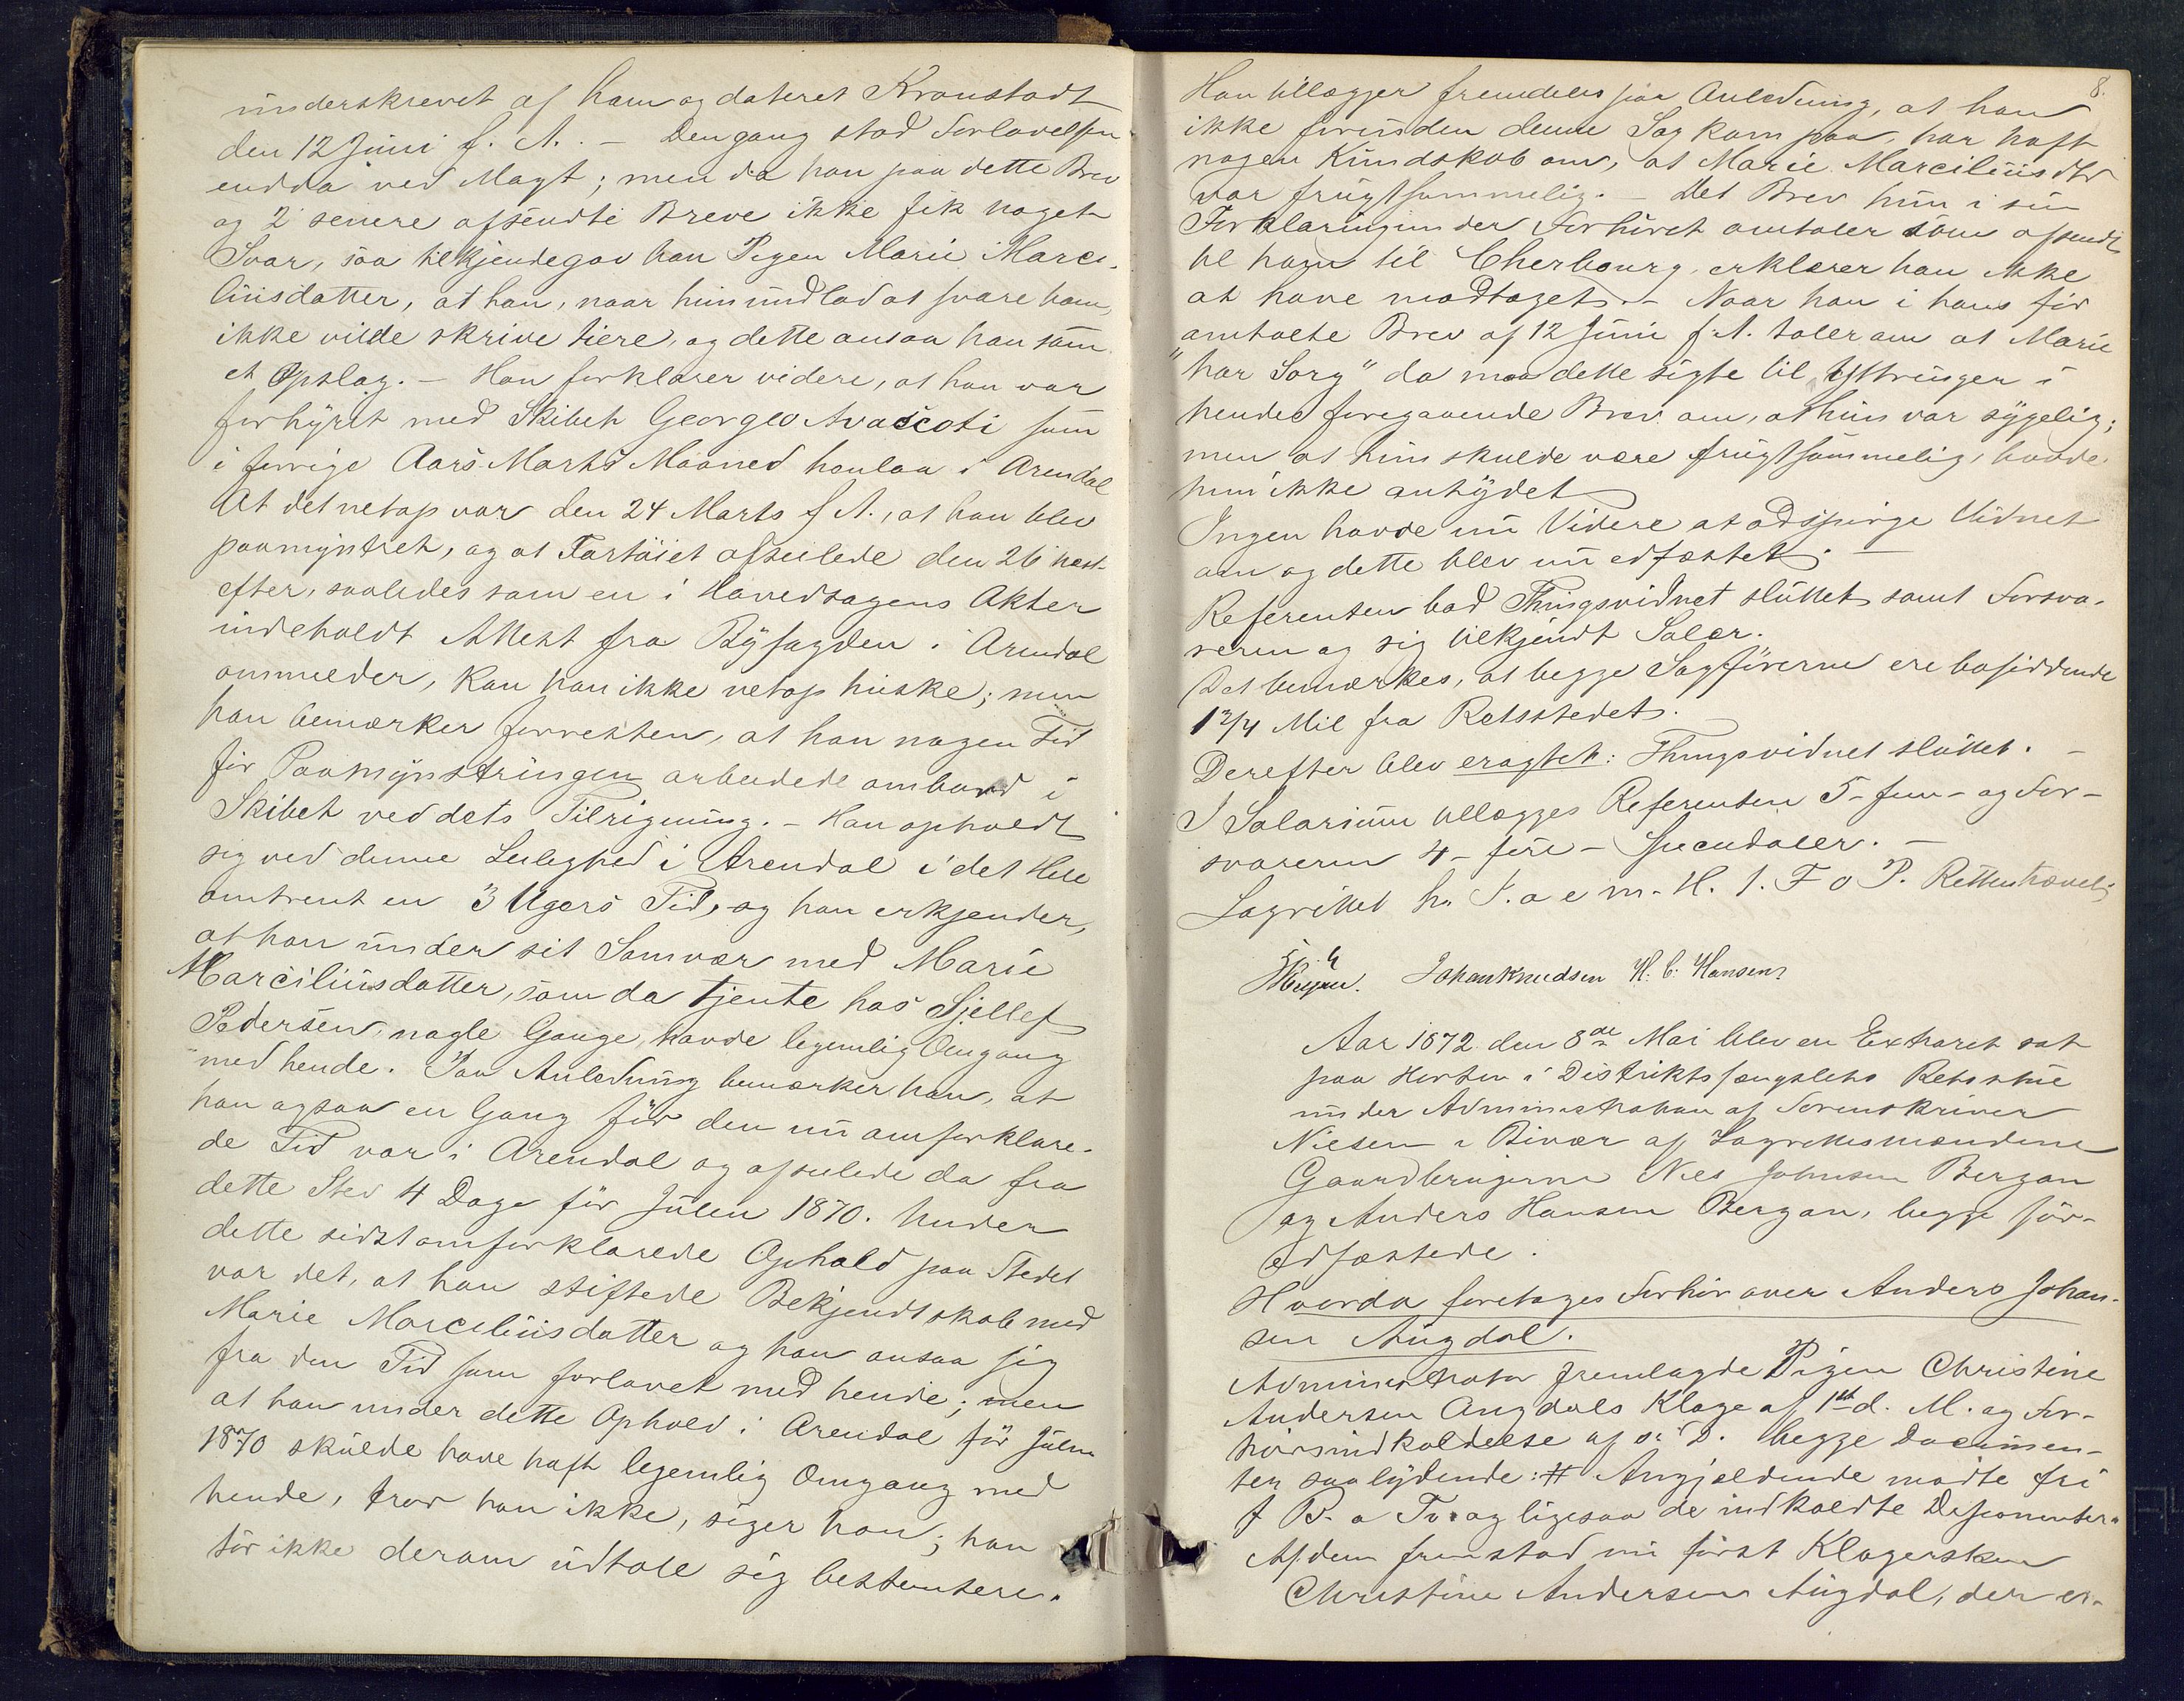 underskrevet af ham og dateret Kronstadt
den 12 Juni f. A. – Dengang stod Forlovelsen
endda ved Magt; men da han paa dette Brev
og 2 senere afsendte Breve ikke fik noget
Svar, saa tilkjendegav han Pigen Marie Marci-
liusdatter, at han, naar hun undlod at svare ham,
ikke vilde skrive tiere, og dette ansaa han som
et Opslag. – Han forklarer videre, at han var
forhyret med Skibet Georgeo Avascoti som
i forrige Aars Marts Maaned henlaa i Arendal
At det netop var den 24 Marts f A., at han blev
paamynstret, og at Fartøiet afseilede den 26 næst
efter, saaledes som en i Hovedsagens Akter
indeholdt Attest fra Byfogden i Arendal
ommelder, kan han ikke netop huske; men
han bemærker forresten, at han nogen Tid
før Paamynstringen arbeidede ombord i
Skibet ved dets Tilrigning. – Han opholdt
sig ved denne Leilighed i Arendal i det Hele
omtrent en 3 Ugers Tid, og han erkjender,
at han under sit Samvær med Marie
Marciliusdatter, som da tjente hos Tjellef
Pedersen, nogle Gange, havde legemlig Omgang
med hende. Paa Anledning bemærker han, at
han ogsaa en Gang før den nu omforklare-
de Tid var i Arendal og afseilede da fra
dette Sted 4 Dage før Julen 1870. Under
dette sidst omforklarede Ophold paa Stedet
var det, at han stiftede Bekjendtskab med
Marie Marciliusdatter og han ansaa sig
fra den Tid som forlovet med hende; men
at han under dette Ophold i Arendal før Julen
1870 skulde have haft legemlig Omgang med
hende, tror han ikke, siger han; han
tør ikke derom udtale sig bestemtere.
8.
Han tillægger fremdeles paa Anledning, at han
ikke forinden denne Sag kom paa, har haft
nogen Kundskab om, at Marie Marciliusdtr
var frugtsommelig. – Det Brev hun i sin
Forklaring under Forhøret omtaler som afsendt
til ham til Cherbourg, erklærer han ikke
at have modtaget. – Naar han i hans før
omtalte Brev af 12 Juni f. A. taler om at Marie
"har Sorg" da maa dette sigte til Yttringer i
hendes foregaaende Brev om, at hun var sygelig;
men at hun skulde være frugtsommelig, havde
hun ikke antydet
Ingen havde nu Videre at adspørge Vidnet
om og dette blev nu edfæstet. –
Referenten bad Thingsvidnet sluttet samt Forsva-
reren og sig tilkjendt Salær.
Det bemærkes, at begge Sagførerne ere bosiddende
1 3/4 Mil fra Retsstedet.
Derefter blev eragtet: Thingsvidnet sluttet. –
I Salarium tillægges Referenten 5 – fem – og For-
svareren 4 – fire – Speciedaler. –
Lagrettet h. F. a e m. H. f. F o P. Retten hævet
Johan Knudsen H. C. Hansen
Aar 1872 den 8de Mai blev en Extraret sat
paa Horten i Distriktsfængslets Retsstue
under Administration af Sorenskriver
Nielsen i Bivær af Lagrettesmændene
Gaardbrugerne Niels Johnsen Bergan
og Anders Hansen Bergan, begge før-
edfæstede.
Hvorda foretoges Forhør over Anders Johan-
sen Augdal.
Administrator fremlagde Pigen Christine
Andersen Augdals Klage af 1ste d. M. og For-
hørsindkaldelse af s. D. begge Documen-
ter saalydende: # Angjældende mødte fri
f B. o Tv. og ligesaa de indkaldte Deponenter.
Af dem fremstod nu først Klagersken
Christine Andersen Augdal, der er-